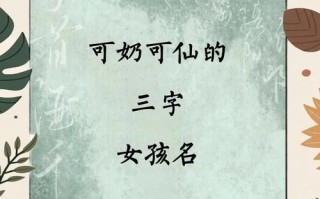 可奶可仙的
三字
女孩名